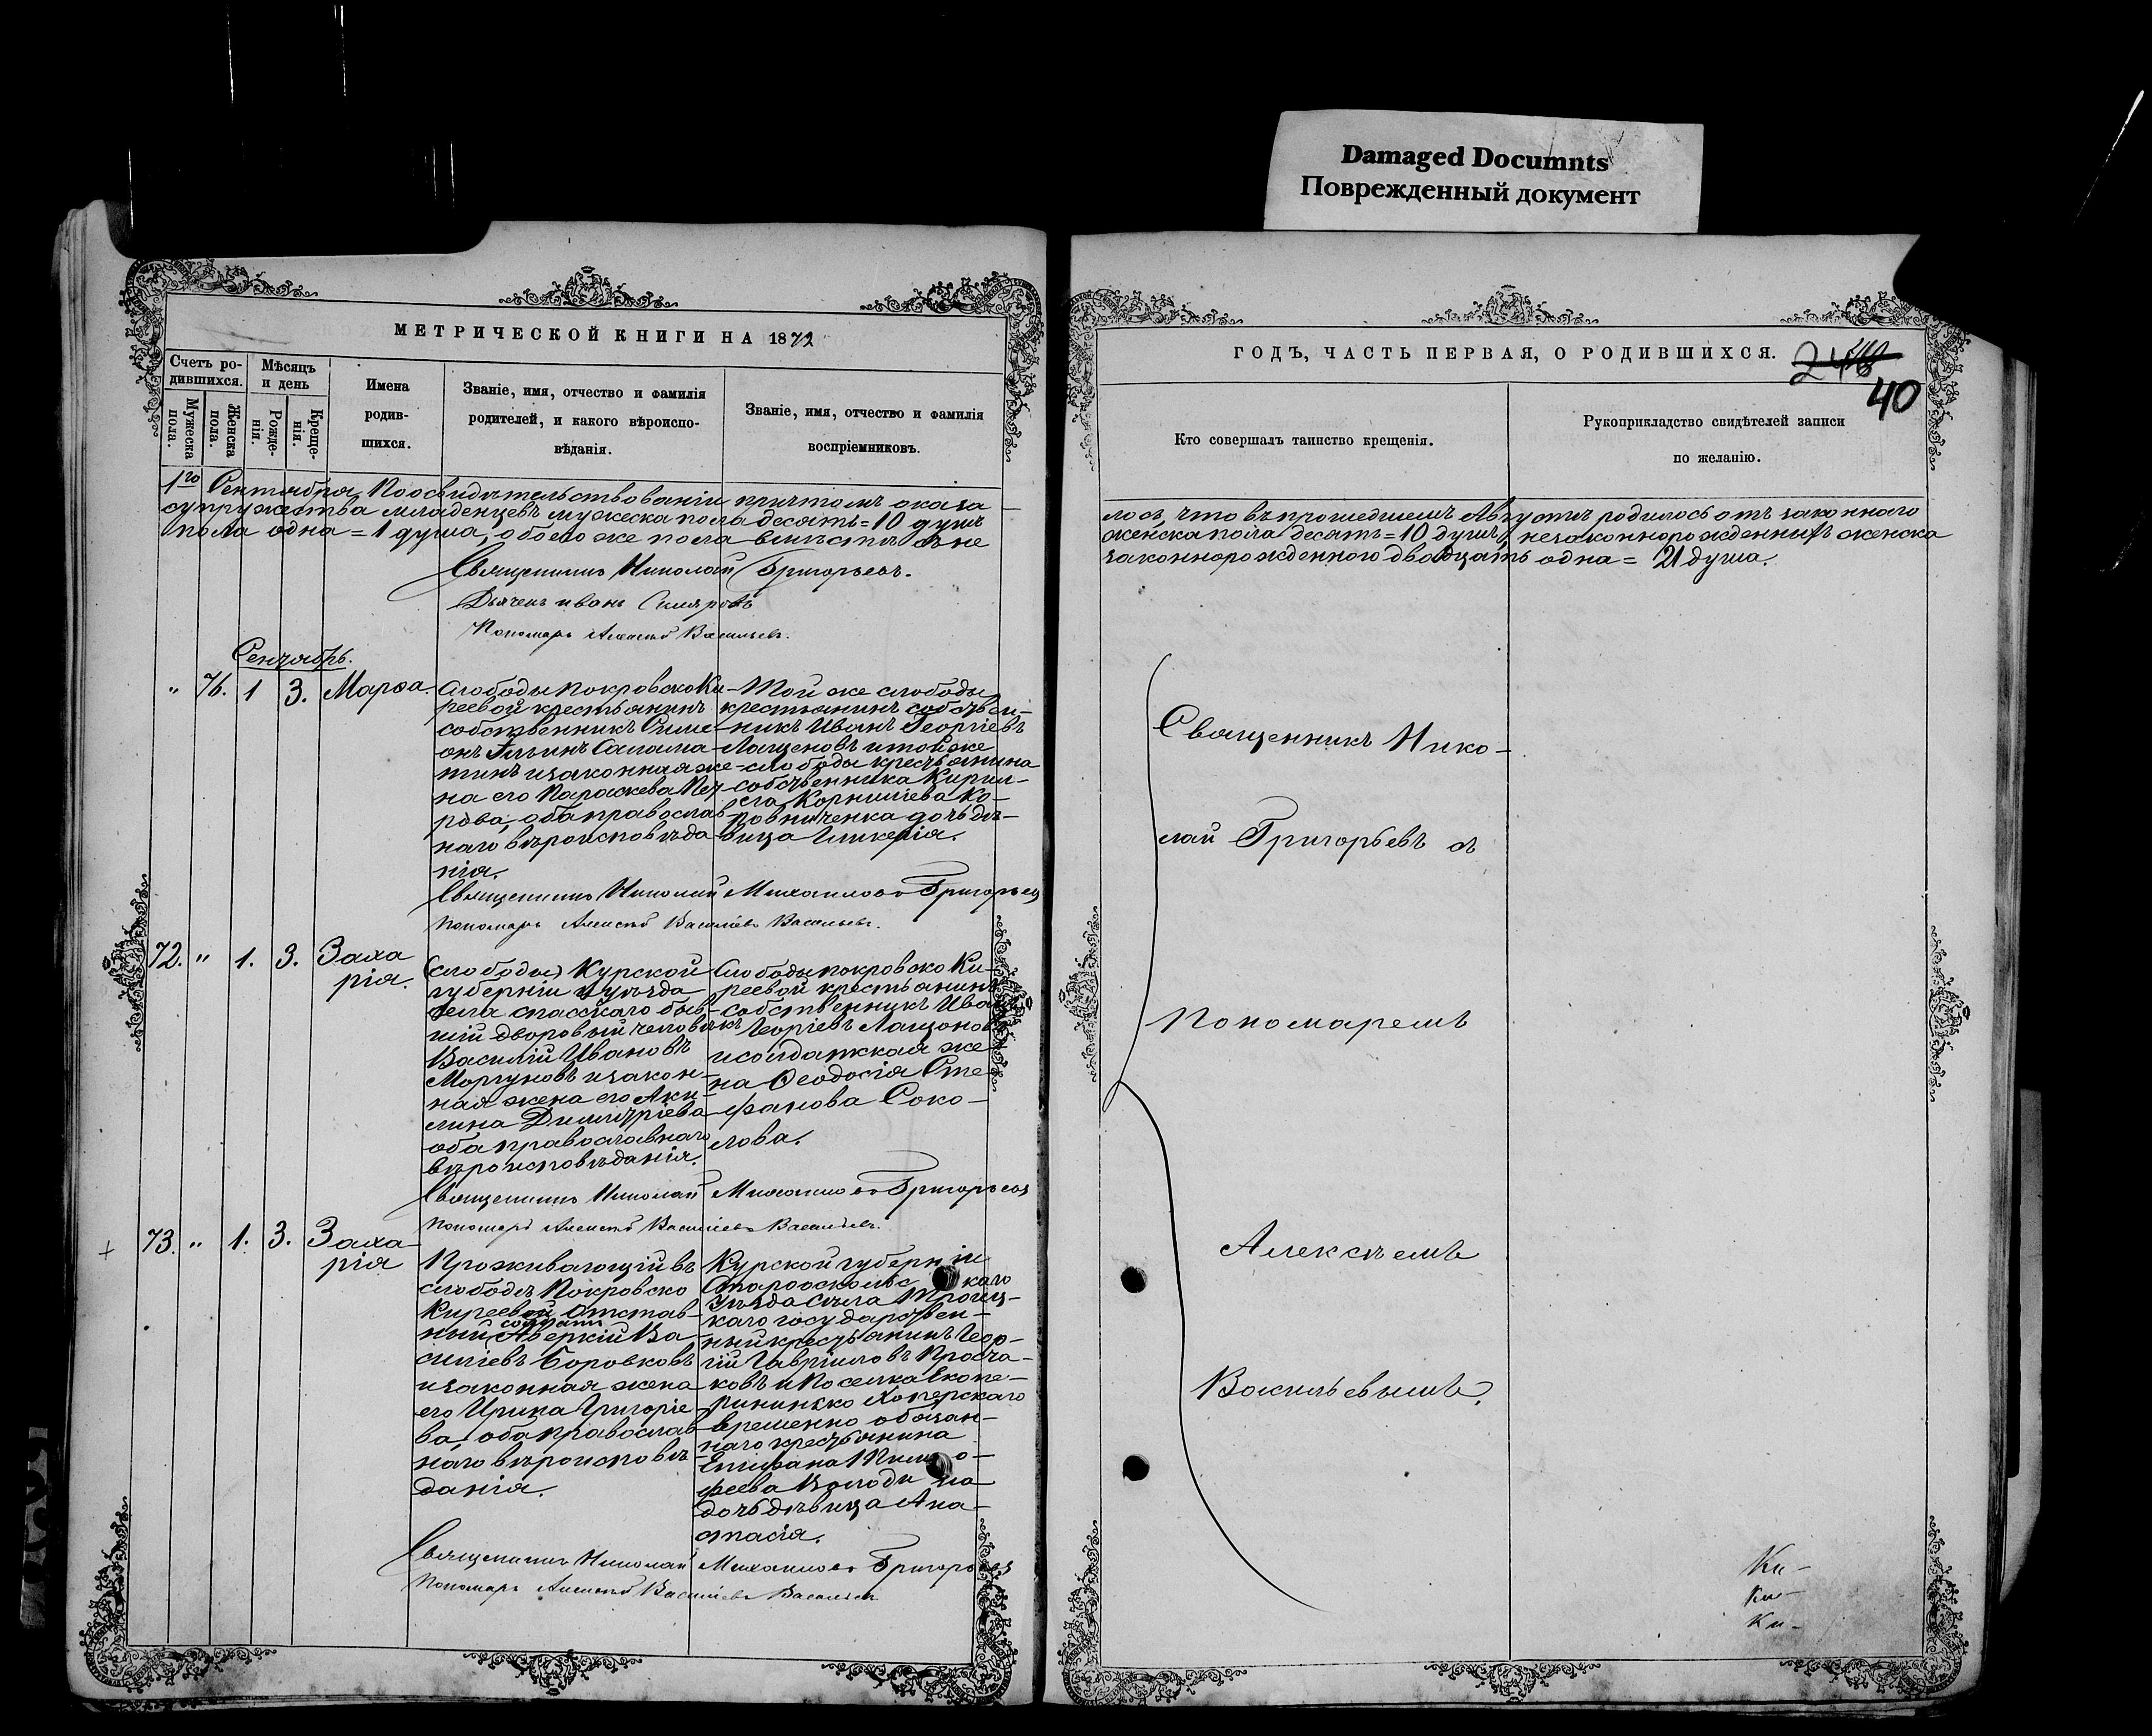 Damaged Documnts
Поврежденный документ
МЕТРИЧЕСКОЙ КНИГИ НА 1872
Счетъ ро-
дившихся.
Мѣсяцъ
и день
Мужеска
пола.
Женска
пола.
Рожде-
нія.
Креще-
нія.
Имена
родив-
шихся.
Званіе, имя, отчество и фамилія
родителей, и какого вѣроиспо-
вѣданія.
Званіе, имя, отчество и фамилія
воспріемниковъ.
1го Сентября, По освидѣтельствованіи причтомъ оказа
супружества младенцевъ мужеска пола десять = 10 душъ
пола одна = 1 душа, обоего же пола вмѣстѣ съ не
Священникъ Николай Григорьевъ.
Дьячекъ Иванъ
Пономарь Алексѣй Васильевъ.
Сентябрь.
" 76. 1 3. Марѳа.
Слободы Покровско Ки-
реевой крестьянинъ
собственникъ Симе-
онъ Ильинъ Салама-
тинъ и законная же-
на его Параскева Пет-
рова, оба православ
наго вѣроисповѣда
нія.
Той же слободы
крестьянинъ собствен-
никъ Иванъ Георгіевъ
Лащеновъ и той же
слободы крестьянина
собственника Кирил-
ла Корниліева Ко-
ровниченка дочь дѣ-
вица Гликерія.
Священникъ Николай Михаиловъ Григорьевъ
Пономарь Алексѣй Василіевъ Васильевъ.
72. " 1. 3. Заха
рія.
(слободы) Курской
губерніи и уѣзда
села Спасскаго быв-
шій дворовый человѣкъ
Василій Ивановъ
Моргуновъ и закон-
ная жена его Аки-
лина Димитріева
оба православнаго
вѣроисповѣданія.
Слободы Покровско Ки-
реевой крестьянинъ
собственникъ Иванъ
Георгіевъ Лащоновъ
и солдатская же
на Ѳеодосія Сте
фанова Соко-
лова.
Священникъ Николай Михаиловъ Григорьевъ
Пономарь Алексѣй Василіевъ Васильевъ.
73. " 1. 3. Заха-
рія
Проживающій въ
слободѣ Покровско
Киреевой отстав-
ный солдатъ Аверкій Ва
силіевъ Боровковъ
и законная жена
его Ирина Григорiе
ва, оба православ
наго вѣроисповѣ
данія.
Курской губерніи
Старооскольскаго
Уѣзда Села Троиц-
каго государствен-
ный крестьянинъ Геор-
гій Гавріиловъ Просча-
ковъ и Поселка Екате-
рининско Хоперскаго
временно обязан-
наго крестьянина
Епифана Тимо-
феева
дочь дѣвица Ана-
стасія.
Священникъ Николай Михаиловъ Григорьевъ
Пономарь Алексѣй Василіевъ Васильевъ
ГОДЪ, ЧАСТЬ ПЕРВАЯ, О РОДИВШИХСЯ.
40
Кто совершалъ таинство крещенія.
Рукоприкладство свидѣтелей записи
по желанію.
лось, что въ прошедшемъ Августѣ родилось отъ законнаго
женска пола десять = 10 душъ, незаконнорожденныхъ женска
законнорожденнаго двадцать одна = 21 душа.
Священникъ Нико-
лай Григорьевъ съ
Пономаремъ
Алексѣемъ
Васильевымъ.
Ки-
Ки-
Ки-